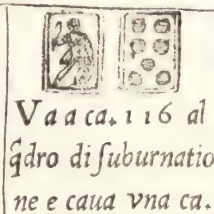 Va a ca. 116 al
q̃dro di suburnatio
ne e caua vna ca.